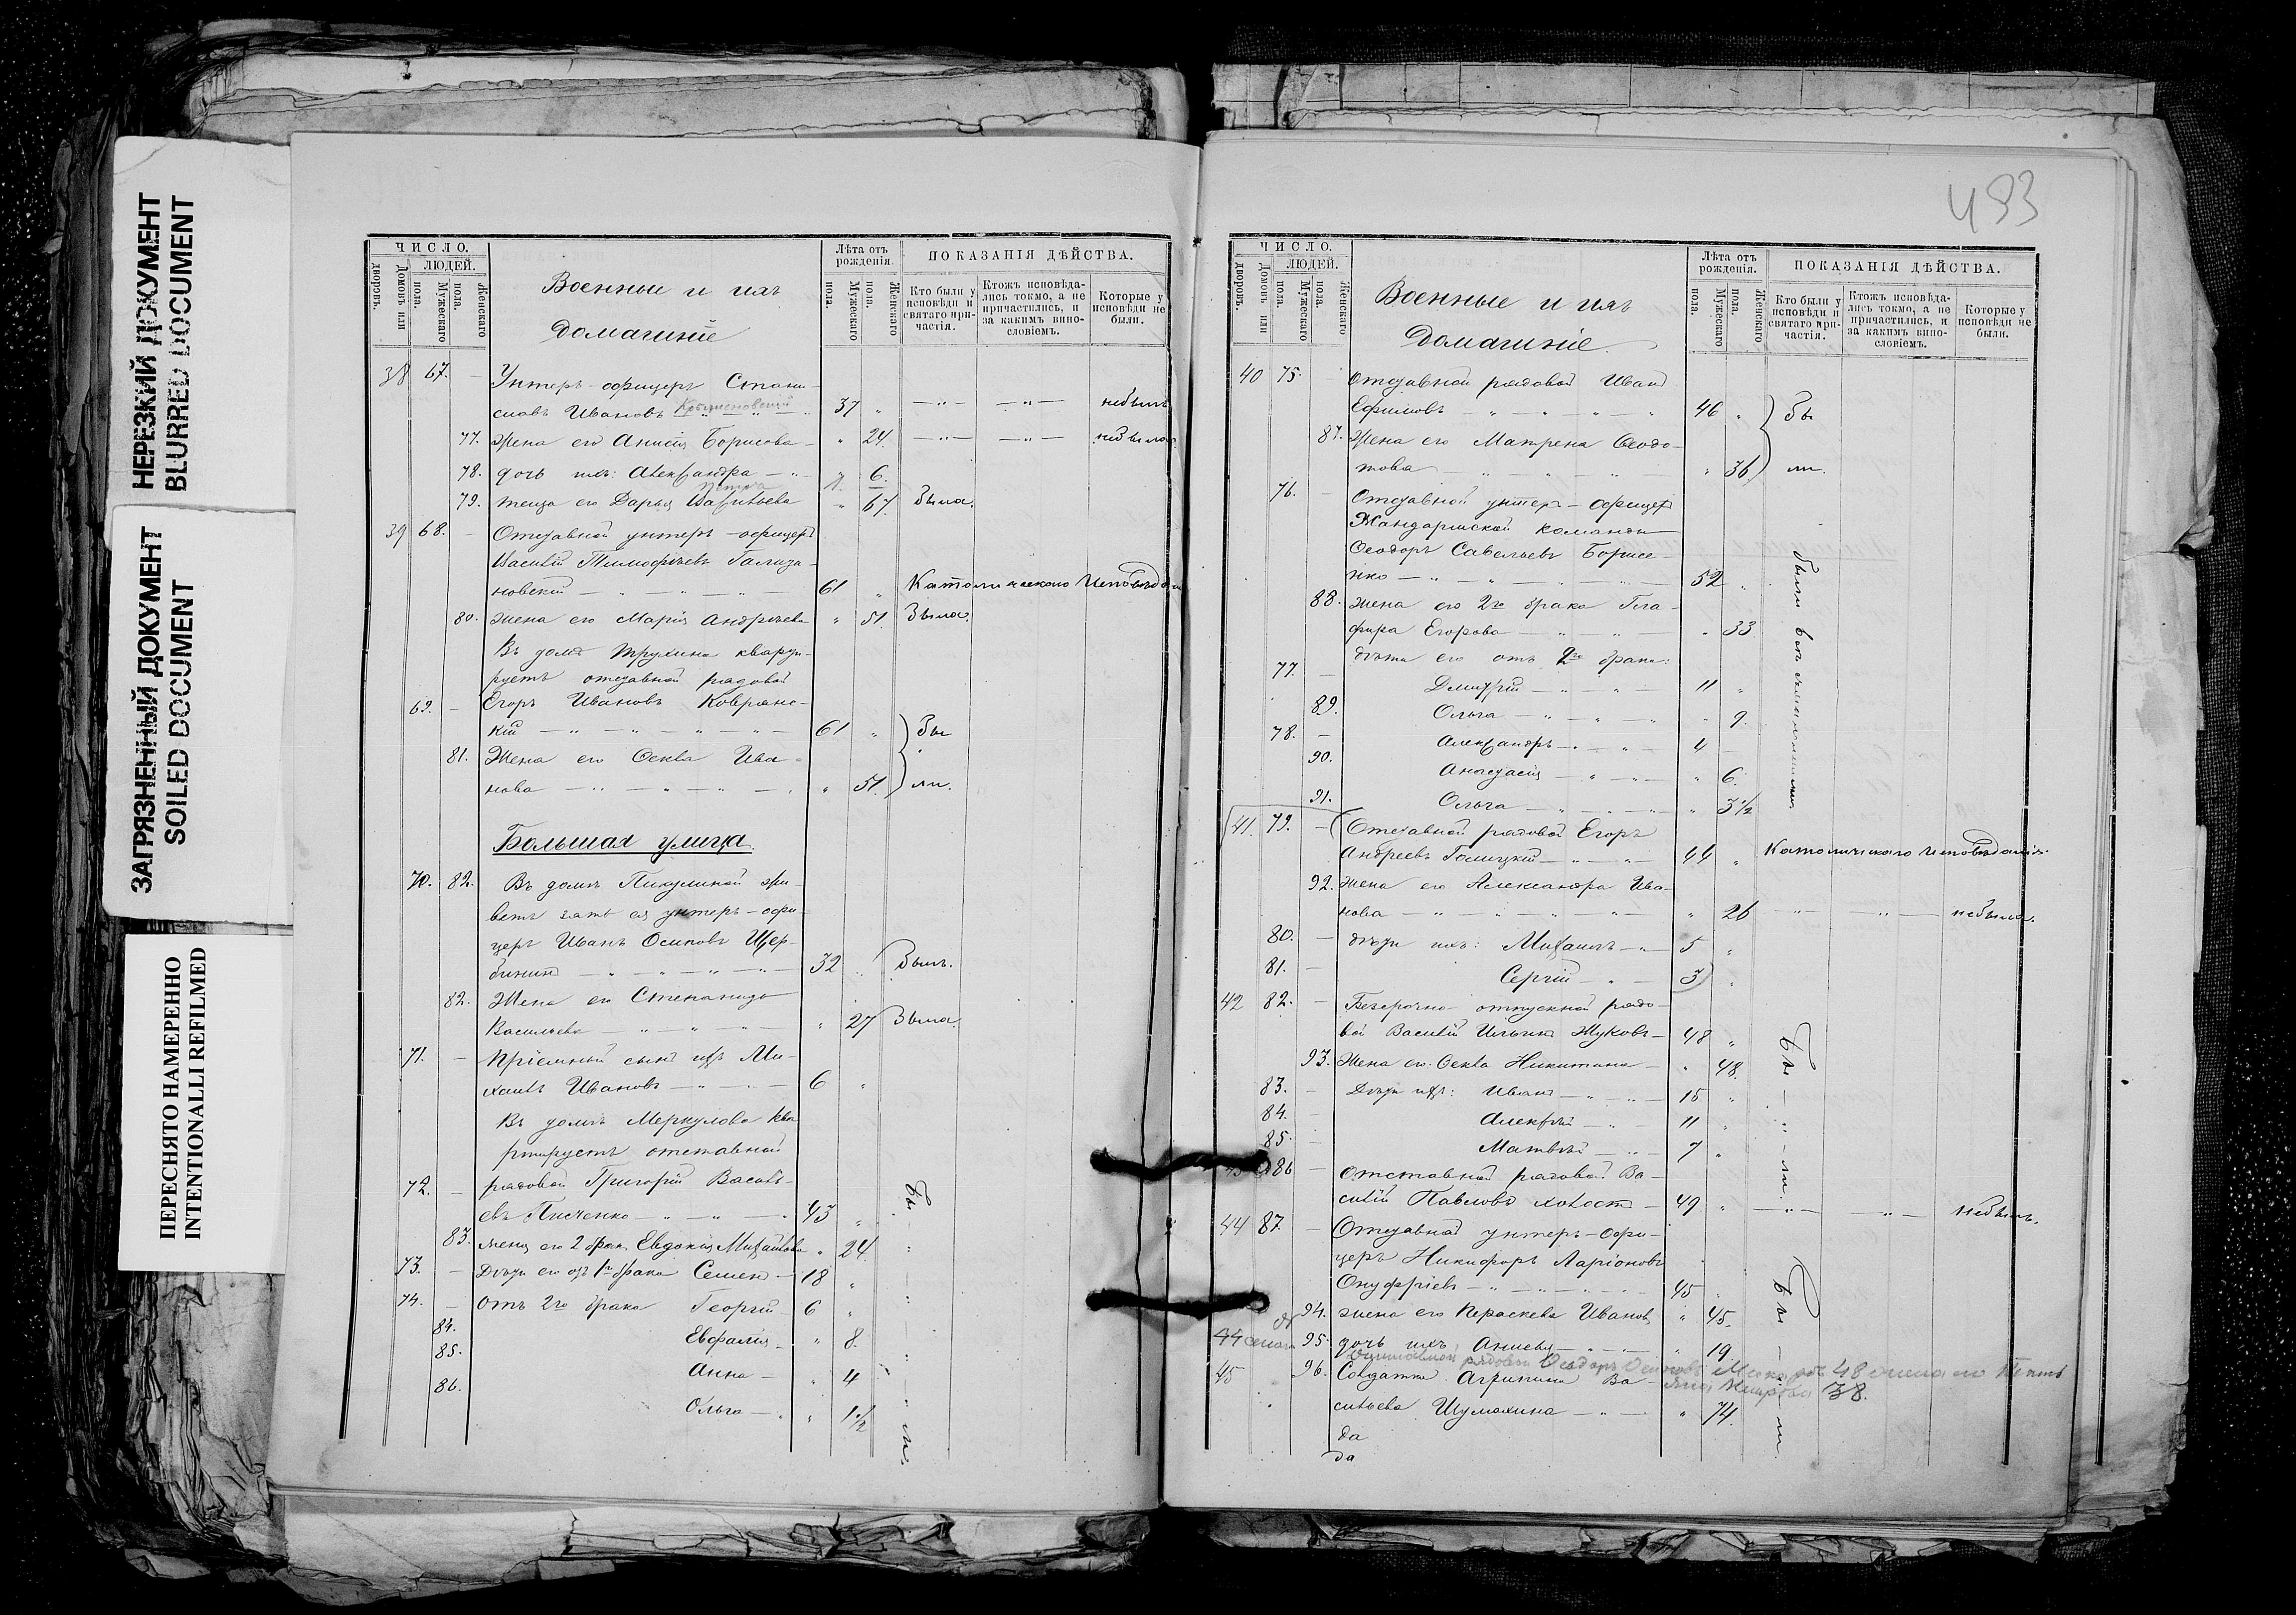 НЕРЕЗКИЙ ДОКУМЕНТ
BLURRED DOCUMENT
ЗАГРЯЗНЕННЫЙ ДОКУМЕНТ
SOILED DOCUMENT
ПЕРЕСНЯТО НАМЕРЕННО
INTENTIONALLI REFILMED
ЧИСЛО. Лѣта отъ рожденія. ПОКАЗАНІЯ ДѢЙСТВА.
Домовъ или дворовъ. ЛЮДЕЙ. Мужескаго пола. Женскаго пола. Военные и ихъ домашніе Мужескаго пола. Женскаго пола. Кто были у исповѣди и святаго причастія. Ктожъ исповѣдались токмо, а не причастились, и за какимъ винословіемъ. Которые у исповѣди не были.
38 67. — Унтеръ-офицеръ Стани-
славъ Ивановъ 37 " небылъ
77. Жена его Анисія Борисова " 24 небыла
78. дочь ихъ: Александра " 6.
79. теща его Дарья " 67. Была.
39 68. — Отставной унтеръ-офицеръ
Василій Тимофѣевъ
новскій 61 " Католическаго Исповѣдан
80. жена его Марія Андрѣева " 51. Была.
Въ домѣ Трухина кварти-
руетъ отставной рядовой
69. — Егоръ Ивановъ Коврянс-
кій 61 " Бы
81. Жена его Ѳекла Ива-
нова " 51. ли.
Большая улица.
70. 82. Въ домѣ Пикулиной жи-
ветъ зять ея унтеръ-офи-
церъ Иванъ Осиповъ Щер-
бинин 32 Былъ.
82. Жена его Степанида
Васильева " 27 Была.
71. — Пріемный сынъ ихъ Ми-
хаилъ Ивановъ 6 "
Въ домѣ Меркулова ква
ртируетъ отставной
72. — рядовой Григорій Василь-
евъ 43 " Бы
83. жена его 2 брак. Евдокія Михайлова " 24
73. — Дѣти его отъ 1го брака Семенъ 18 "
74. — отъ 2го брака Георгій 6 "
84. Евфалія " 8.
85. Анна " 4
86. Ольга " 1½ ли.
483
ЧИСЛО. Лѣта отъ рожденія. ПОКАЗАНІЯ ДѢЙСТВА.
Домовъ или дворовъ. ЛЮДЕЙ. Мужескаго пола. Женскаго пола. Военные и ихъ домашніе. Мужескаго пола. Женскаго пола. Кто были у исповѣди и святаго причастія. Ктожъ исповѣдались токмо, а не причастились, и за какимъ винословіемъ. Которые у исповѣди не были.
40 75. — Отставной рядовой Иванъ
Ефимовъ 46 " Бы
87. Жена его Матрена Ѳеодо-
това " 36 ли.
76. — Отставной унтеръ-офицеръ
Жандармской команды
Ѳеодоръ Савельевъ Борисе-
нко 52 "
88. жена его 2го брака Гла-
фира Егорова " 33
дѣти его отъ 2го брака:
77. — Димитрій 11 "
89. Ольга " 9.
78. — Александръ 4 —
90. Анастасія " 6.
91. Ольга " 3½
41. 79. — Отставной рядовой Егоръ
Андреевъ Голицкій 44 " Католическаго исповѣданія.
92. жена его Александра Ива-
нова " 26 небыла.
80. — дѣти ихъ: Михаилъ 5 "
81. — Сергій 3 "
42 82. — Безсрочно отпускной рядо-
вой Василій Ильинъ Жуковъ 48 " Бы
93. Жена его Ѳекла Никитина " 48.
83. — Дѣти ихъ: Иванъ 15 "
84. — Алексѣй 11 "
85. — Матвѣй 7 " ли.
86 — Отставной рядовой Ва-
силій Павловъ холостъ 49 " небылъ.
44 87. — Отставной унтеръ-офи-
церъ Никифоръ Ларіоновъ
Онуфріевъ 45 " Бы
94. жена его Параскева Иванов. " 45.
95. дочь ихъ " 19
45 96. Солдатка Агрипина Ва-
сильева Шумахина " 74. ли.
да
да